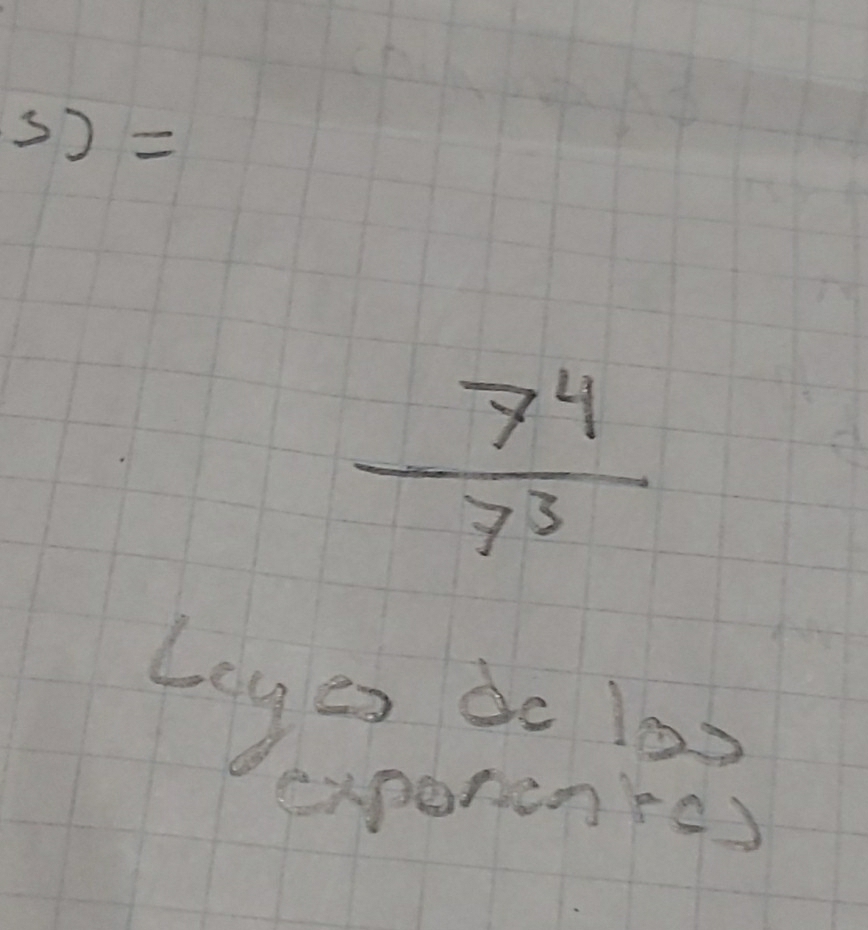 s) =
7⁴
7³
Leyes de los
exponentes